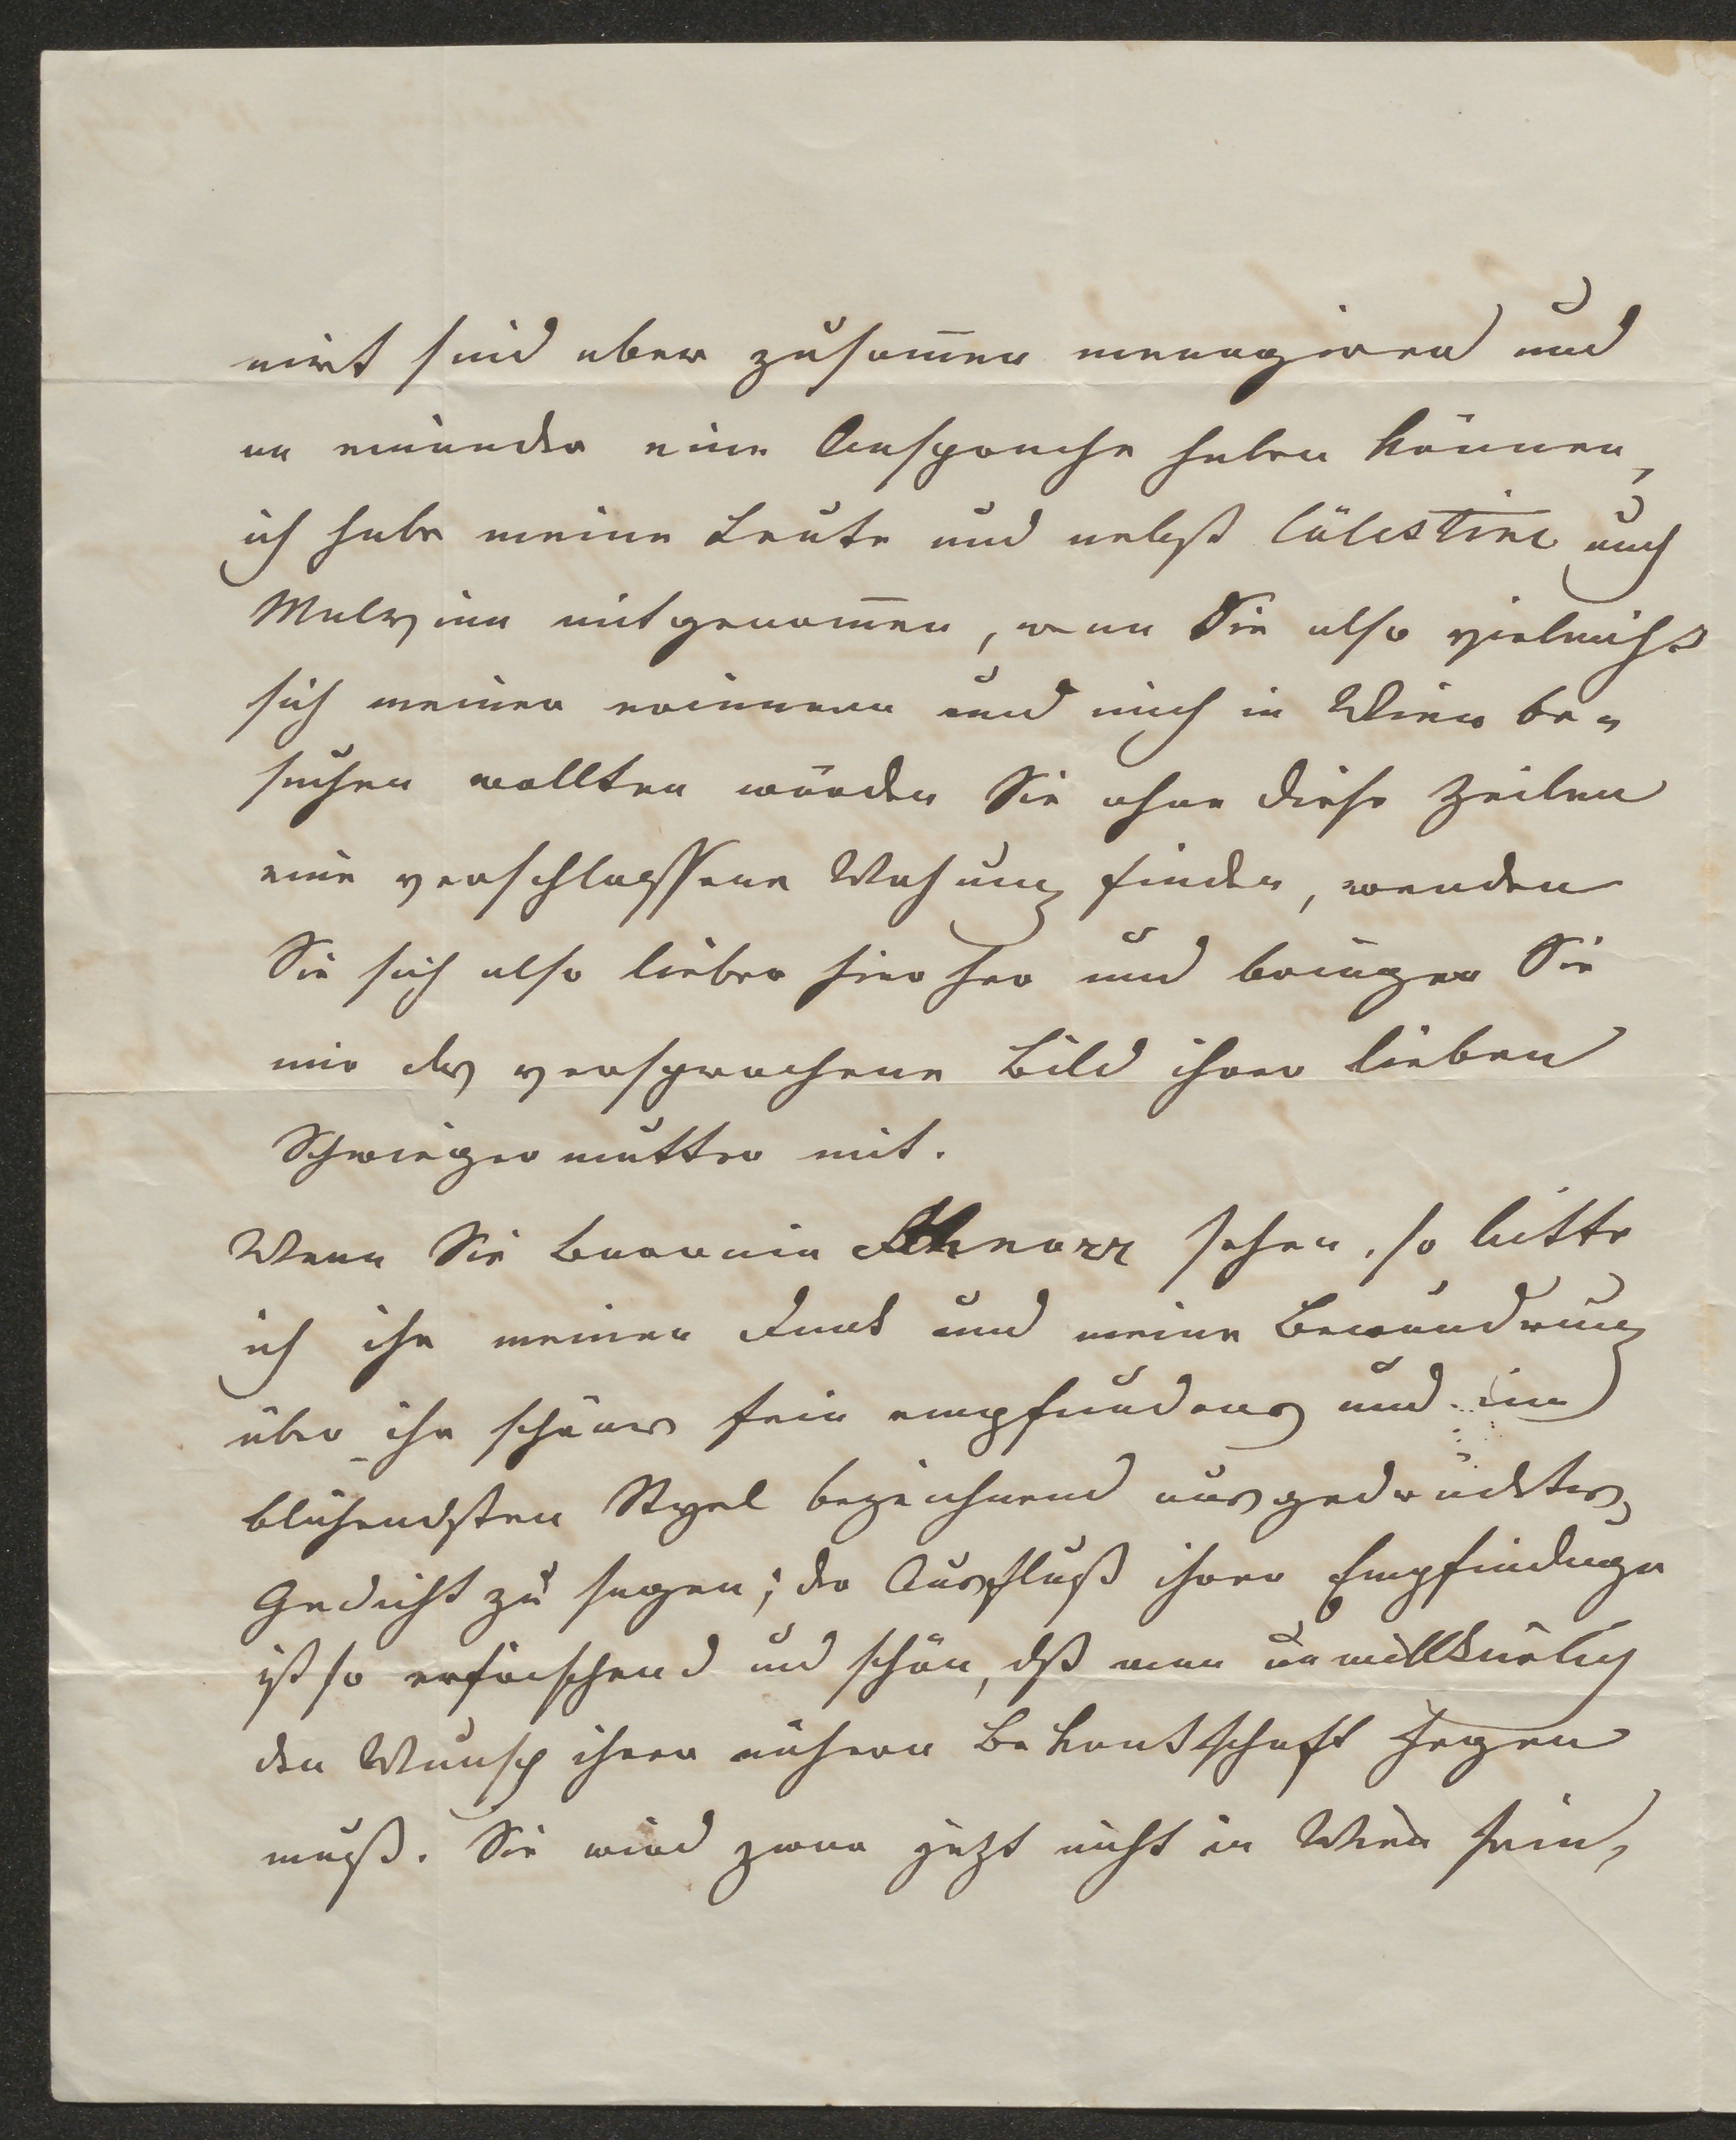 nirt sind aber zusam̅en menagiren und
an einander eine Ansprache haben können,
ich habe meine Leute und nebst Cälestine auch
Malvina mitgenom̅en, wenn Sie also vieleicht
sich meiner erinnern und mich in Wien be-
suchen wollten würden Sie ohne diese Zeilen
eine verschlossene Wohnung finden, wenden
Sie sich also lieber hierher und bringen Sie
mir das versprochene Bild ihrer lieben
Schwiegermutter mit.
Wenn Sie Baronin Schnorr sehen, so bitte
ich ihr meinen Dank und meine Bewundrung
über ihr schönes fein empfundenes und im
blühendsten Styel bezeichnend ausgedrücktes
Gedicht zu sagen; der Ausfluß ihrer Empfindungen
ist so erfrischend und schön, dß man unwillkürlig
den Wunsch ihrer nähern Bekantschaft hegen
muß. Sie wird zwar jetzt nicht in Wien sein,